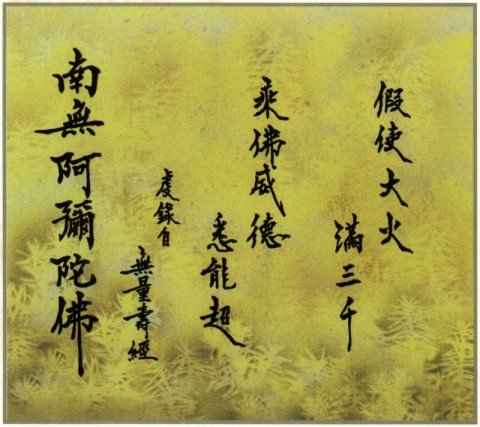 假使大火
滿三千
乘佛威德
悉能超
虔錄自
無量壽經
南無阿彌陀佛